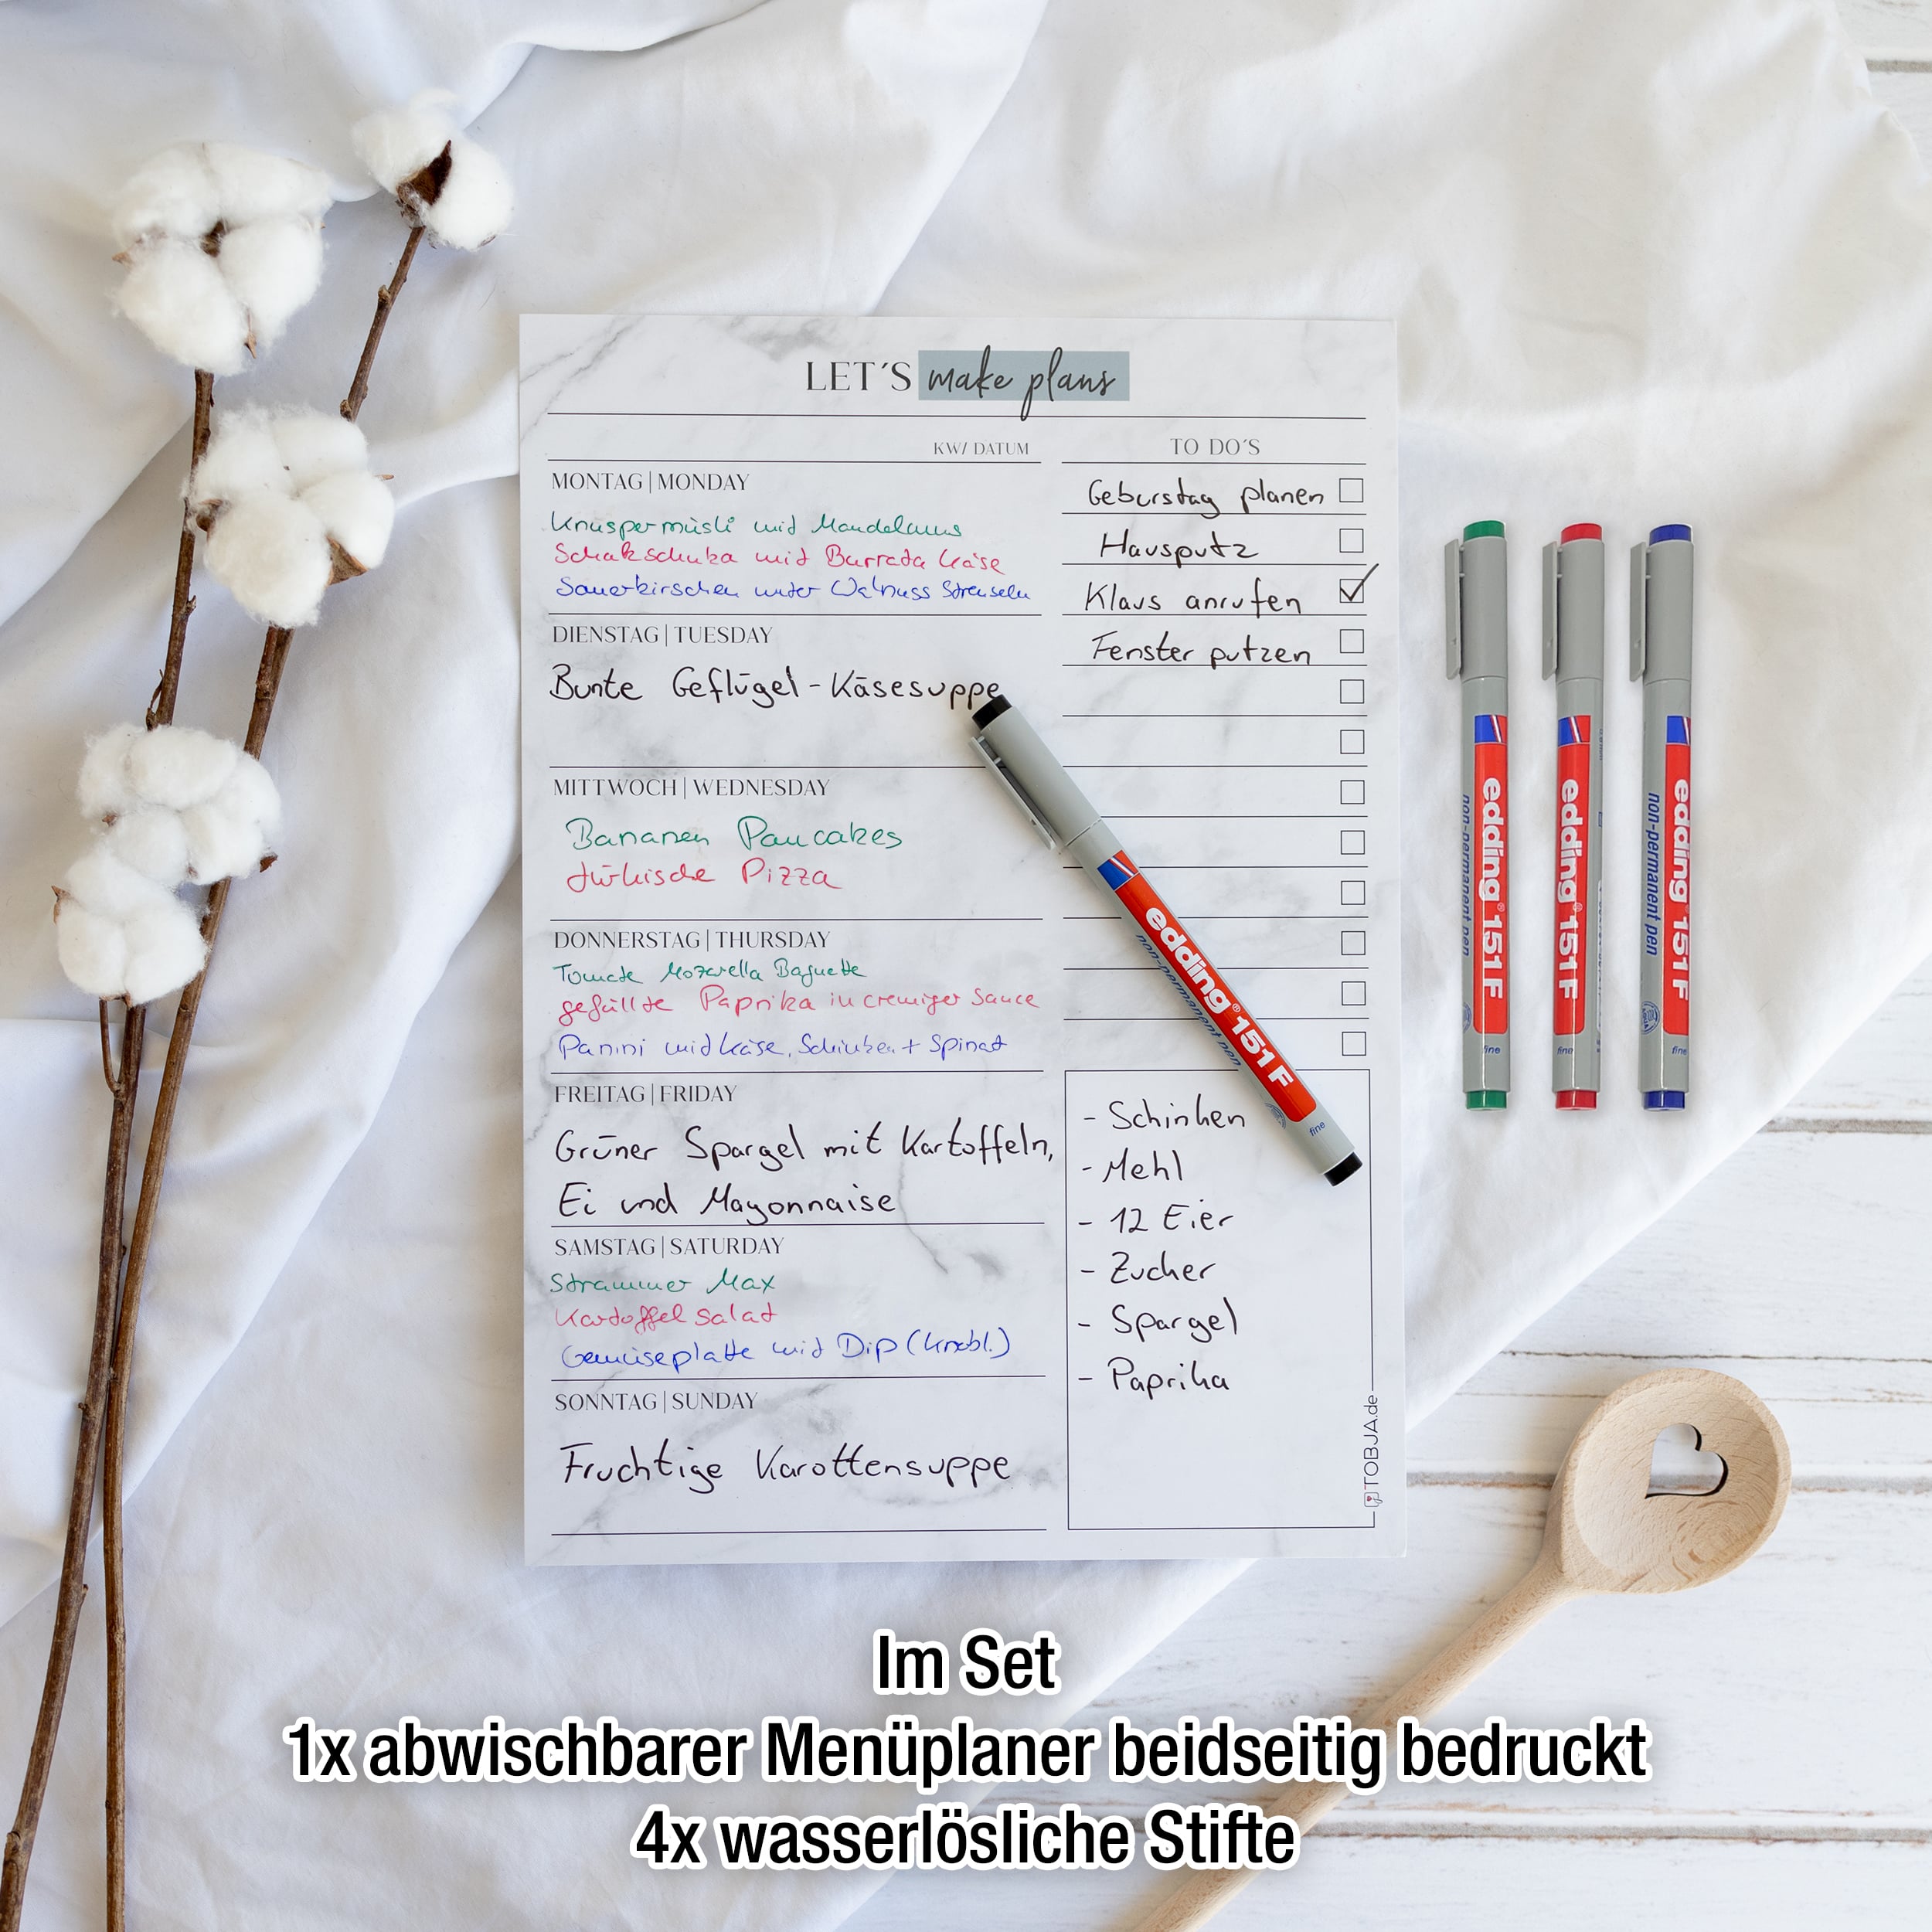 LET´S make plans
KW/ DATUM
MONTAG | MONDAY
Knuspermüsli mit Mandelmus
Schakschuka mit Burrata Käse
Sauerkirschen unter Walnuss Streuseln
DIENSTAG | TUESDAY
Bunte Geflügel-Käsesuppe
MITTWOCH | WEDNESDAY
Bananen Pancakes
türkische Pizza
DONNERSTAG | THURSDAY
Tomate Mozarella Baguette
gefüllte Paprika in cremiger Sauce
Panini mit Käse, Schinken + Spinat
FREITAG | FRIDAY
Grüner Spargel mit Kartoffeln,
Ei und Mayonnaise
SAMSTAG | SATURDAY
Strammer Max
Kartoffelsalat
Gemüseplatte mit Dip (Knobl.)
SONNTAG | SUNDAY
Fruchtige Karottensuppe
TO DO´S
Geburstag planen
Hausputz
Klaus anrufen
Fenster putzen
- Schinken
- Mehl
- 12 Eier
- Zucher
- Spargel
- Paprika
TOBJA.de
edding® 151 F
non-permanent pen
fine
edding® 151 F
non-permanent pen
fine
edding® 151 F
fine
edding 151 F
non-permanent pen
fine
Im Set
1x abwischbarer Menüplaner beidseitig bedruckt
4x wasserlösliche Stifte